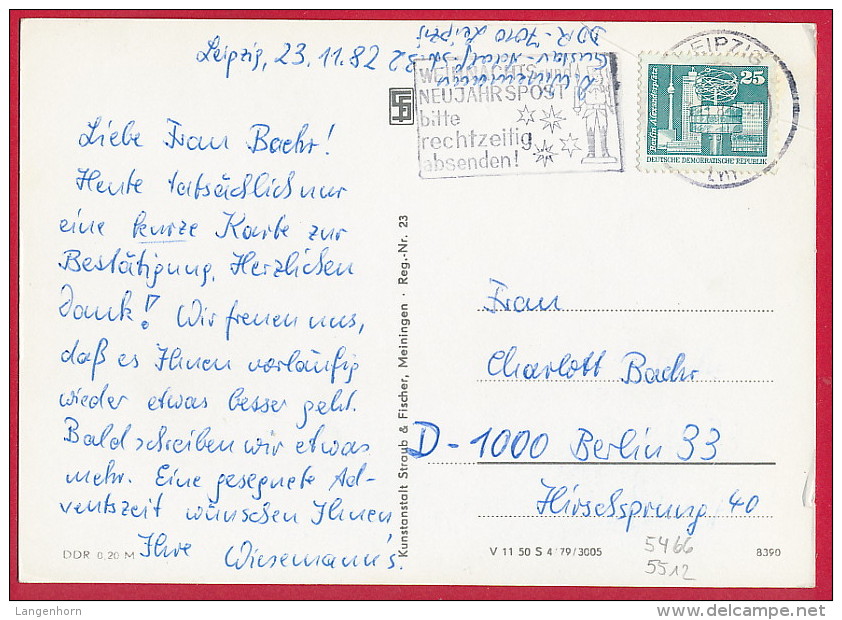 Leipzig, 23.11.82
Liebe Frau Baehr!
Heute tatsächlich nur
eine kurze Karte zur
Bestätigung. Herzlichen
Dank! Wir freuen uns,
daß es Ihnen vorläufig
wieder etwas besser geht.
Bald schreiben wir etwas
mehr. Eine gesegnete Ad-
ventszeit wünschen Ihnen
Ihre Wiesemann's.
DDR 0,20 M
DDR-7010 Leipzig
Gustav-
32
WEIHNACHTS- und
NEUJAHRSPOST
bitte
rechtzeitig
absenden!
LEIPZIG
25
Berlin, Alexanderplatz
DEUTSCHE DEMOKRATISCHE REPUBLIK
Kunstanstalt Straub & Fischer, Meiningen · Reg.-Nr. 23
Frau
Charlott Baehr
D-1000 Berlin 33
Hirschsprung 40
V 11 50 S 4/79/3005
5466
5512
8390
Langenhorn
delcampe.net